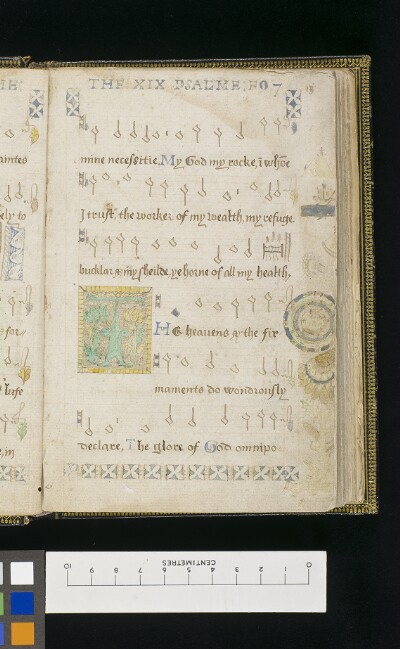 THE XIX PSALME FO 7
mine necessitie, My God my rocke, ī whōe
I trust the worker of my wealth, my refuge
bucklar & my sheilde, ye horne of all my health,
THe heavens & the fir
maments do wondrously
declare, The glore of God omnipo
aintes
ely to
for
CENTIMETRES
10 9 8 7 6 5 4 3 2 1 0